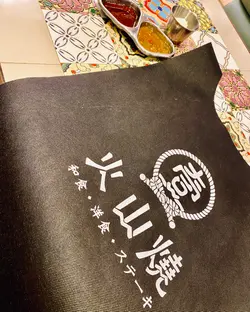 壹
火山燒
和食・洋食・ステーキ